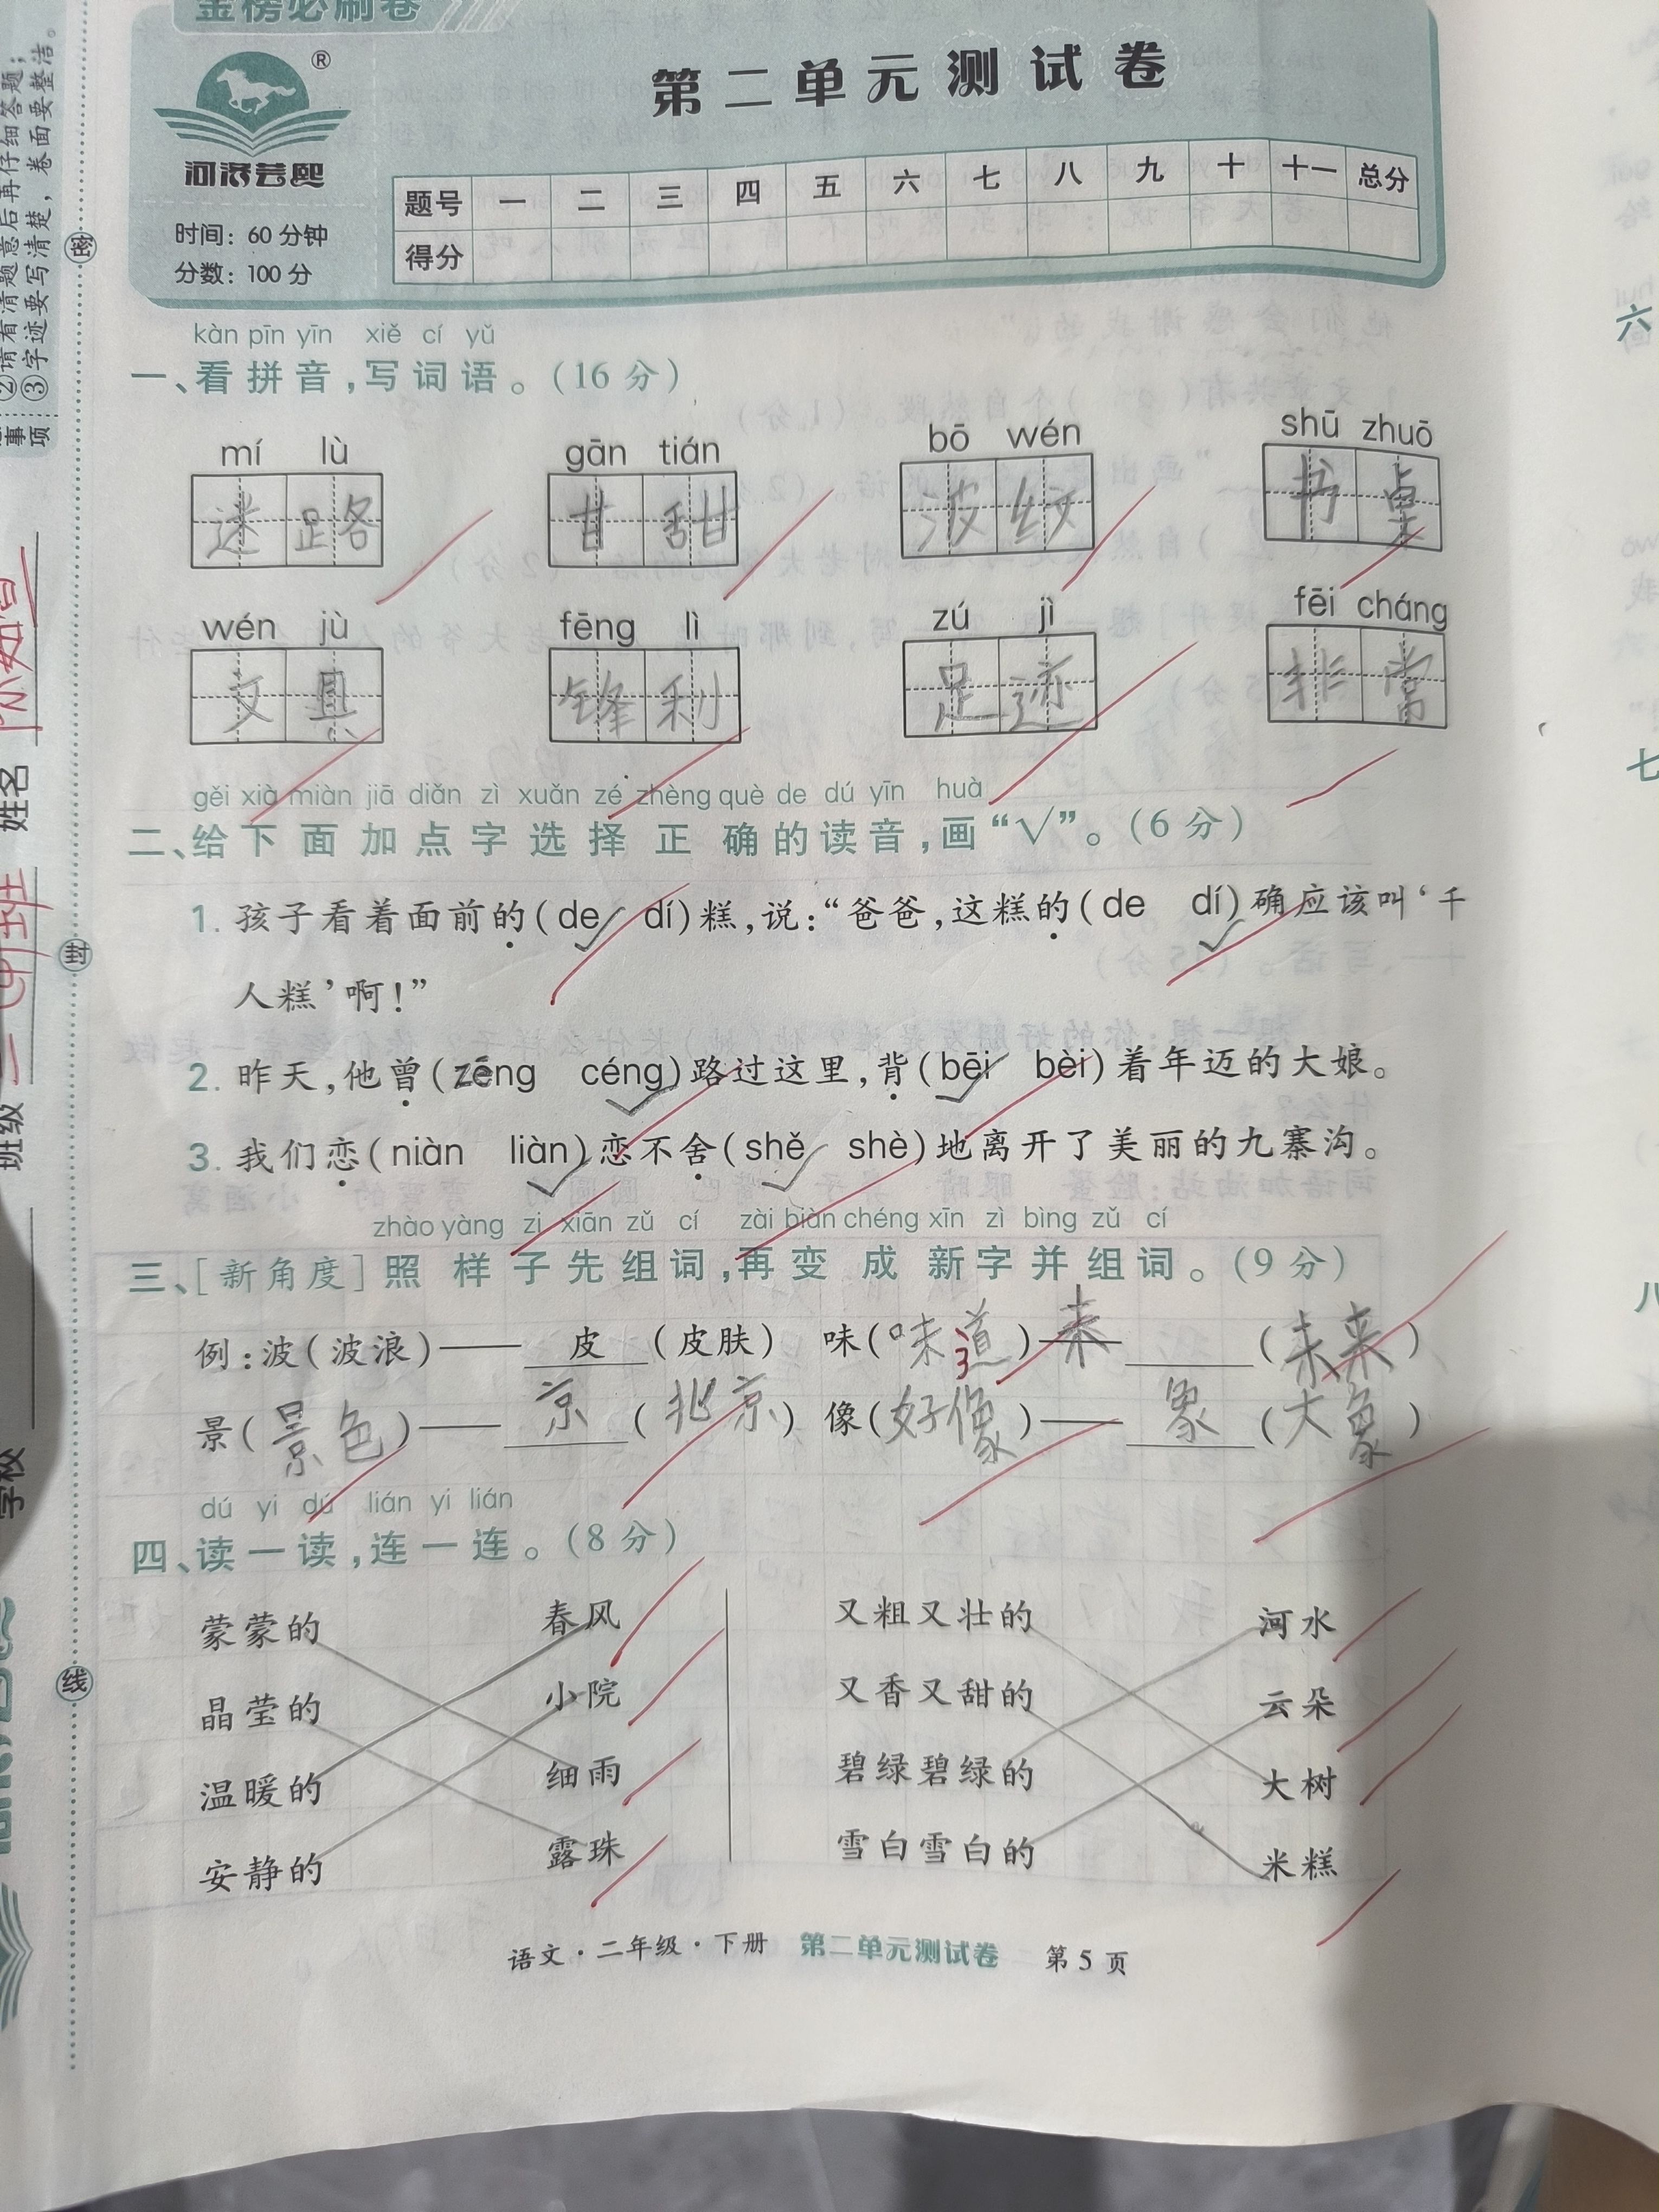 金榜必刷卷
®
河洛芸熙
时间：60 分钟
分数：100 分
第二单元测试卷
题号 一 二 三 四 五 六 七 八 九 十 十一 总分
得分
②请看清题意后再仔细答题；
③字迹要写清楚，卷面要整洁。
事项
密
封
线
姓名
班级 二(9)班
学校
kàn pīn yīn xiě cí yǔ
一、看拼音，写词语。（16 分）
mí lù gān tián bō wén shū zhuō
迷路 甘甜 波纹 书桌
wén jù fēng lì zú jì fēi cháng
文具 锋利 足迹 非常
gěi xià miàn jiā diǎn zì xuǎn zé zhèng què de dú yīn huà
二、给下面加点字选择正确的读音，画“√”。（6 分）
1. 孩子看着面前的（de√ dí）糕，说：“爸爸，这糕的（de dí√）确应该叫‘千
人糕’啊！”
2. 昨天，他曾（zēng céng√）路过这里，背（bēi√ bèi）着年迈的大娘。
3. 我们恋（niàn liàn√）恋不舍（shě√ shè）地离开了美丽的九寨沟。
zhào yàng zi xiān zǔ cí zài biàn chéng xīn zì bìng zǔ cí
三、[新角度]照样子先组词，再变成新字并组词。（9 分）
例：波（波浪）—— 皮（皮肤） 味（味道）—— 未（未来）
景（景色）—— 京（北京） 像（好像）—— 象（大象）
dú yi dú lián yi lián
四、读一读，连一连。（8 分）
蒙蒙的 春风 又粗又壮的 河水
晶莹的 小院 又香又甜的 云朵
温暖的 细雨 碧绿碧绿的 大树
安静的 露珠 雪白雪白的 米糕
语文·二年级·下册 第二单元测试卷 第 5 页
六
七
八